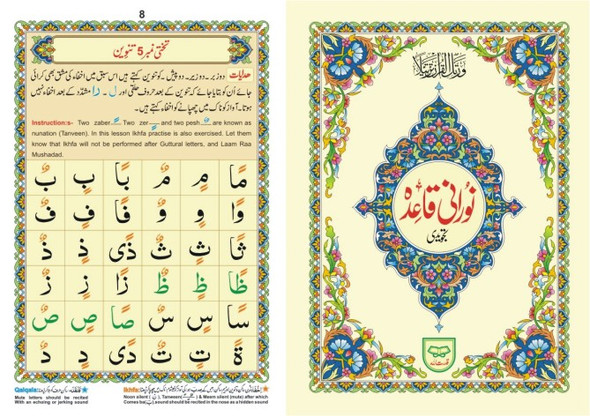 8
تختی نمبر 5 تنوین
ھدایات دو زبر۔ دو زیر۔ دو پیش کو تنوین کہتے ہیں اس سبق میں اخفاء کی مشق بھی کرائی
جائے اُن کو بتایا جائے کہ تنوین کے بعد حروف حلقی اور ل ۔ را مشدّد کے بعد اخفاء نہیں
ہوتا۔ آواز کو ناک میں چھپانے کو اخفاء کہتے ہیں۔
Instruction:s- Two zaber Two zer and two pesh are known as
nunation (Tanveen). In this lesson Ikhfa practise is also exercised. Let them
know that Ikhfa will not be performed after Guttural letters, and Laam Raa
Mushadad.
مًا مٍ مٌ بًا بٍ بٌ
وًا وٍ وٌ فًا فٍ فٌ
ثًا ثٍ ثٌ ذًى ذٍ ذٌ
ظًا ظٍ ظٌ زًا زٍ زٌ
سًا سٍ سٌ صًا صٍ صٌ
ةً تٍ تٌ دًى دٍ دٌ
Ikhfa:
Noon silent Tanween & Meem silent (mute) after which
Comes sound should be recited in the nose as a hidden sound
Qalqala:
Mute letters should be recited
With an echoing or jerking sound
ورتل القرآن ترتيلا
نورانی قاعدہ
تجویدی